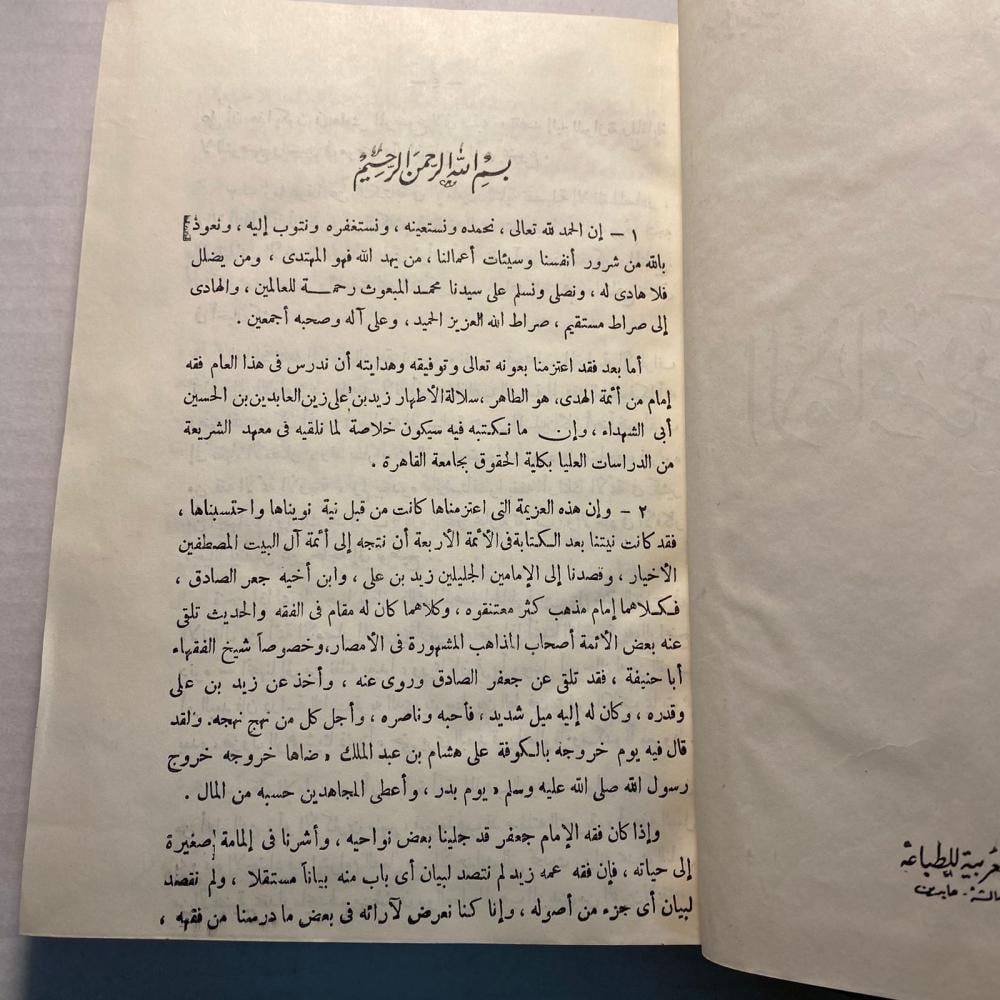 بسم الله الرحمن الرحيم
١ – إن الحمد لله تعالى ، نحمده ونستعينه ، ونستغفره ونتوب إليه ، ونعوذ
بالله من شرور أنفسنا وسيئات أعمالنا ، من يهد الله فهو المهتدى ، ومن يضلل
فلا هادى له ، ونصلى ونسلم على سيدنا محمد المبعوث رحمة للعالمين ، والهادى
إلى صراط مستقيم ، صراط الله العزيز الحميد ، وعلى آله وصحبه أجمعين .
أما بعد فقد اعتزمنا بعونه تعالى وتوفيقه وهدايته أن ندرس فى هذا العام فقه
إمام من أئمة الهدى، هو الطاهر ، سلالة الأطهار زيد بن على زين العابدين بن الحسين
أبى الشهداء ، وإن ما نكتبه فيه سيكون خلاصة لما نلقيه فى معهد الشريعة
من الدراسات العليا بكلية الحقوق بجامعة القاهرة .
٢ – وإن هذه العزيمة التى اعتزمناها كانت من قبل نية نويناها واحتسبناها ،
فقد كانت نيتنا بعد الكتابة فى الأئمة الأربعة أن نتجه إلى أئمة آل البيت المصطفين
الأخيار ، وقصدنا إلى الإمامين الجليلين زيد بن على ، وابن أخيه جعر الصادق ،
فكلاهما إمام مذهب كثر معتنقوه ، وكلاهما كان له مقام فى الفقه والحديث تلقى
عنه بعض الأئمة أصحاب المذاهب المشهورة فى الأمصار، وخصوصاً شيخ الفقهاء
أبا حنيفة ، فقد تلقى عن جعفر الصادق وروى عنه ، وأخذ عن زيد بن على
وقدره ، وكان له إليه ميل شديد ، فأحبه وناصره ، وأجل كل من نهج نهجه. ولقد
قال فيه يوم خروجه بالكوفة على هشام بن عبد الملك « ضاها خروجه خروج
رسول الله صلى الله عليه وسلم « يوم بدر ، وأعطى المجاهدين حسبه من المال .
وإذا كان فقه الإمام جعفر قد جلينا بعض نواحيه ، وأشرنا فى إلمامة صغيرة
إلى حياته ، فإن فقه عمه زيد لم نتصد لبيان أى باب منه بياناً مستقلا ، ولم نقصد
لبيان أى جزء من أصوله ، وإنا كنا نعرض لآرائه فى بعض ما درسنا من فقهه ،
للطباعة